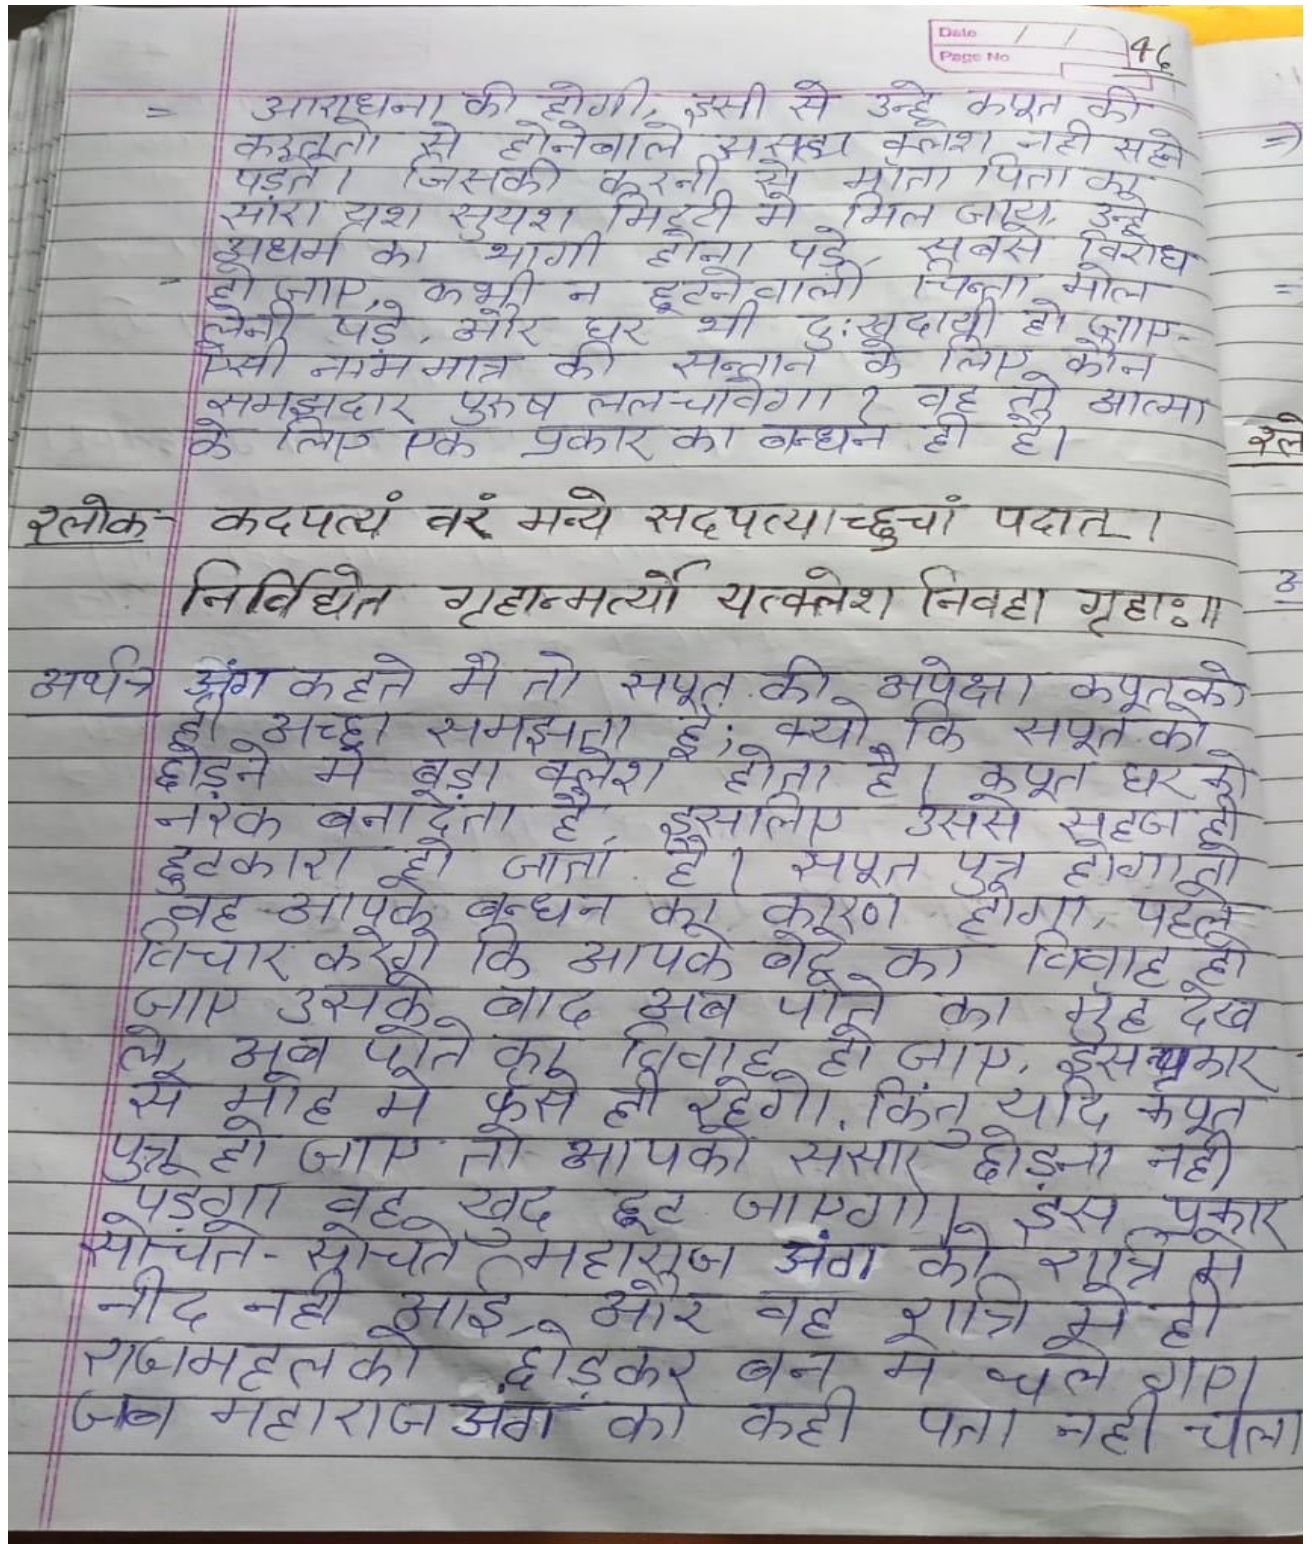 Date / /
Page No 46
= आराधना की होगी, इसी से उन्हे कपूत की
करतूतो से होनेबाले असह्य क्लेश नही सहने
पड़ते। जिसकी करनी से माता पिता का
सारा यश सुयश मिट्टी मे मिल जाए, उन्हे
अधर्म का भागी होना पड़े, सबसे विरोध
हो जाए, कभी न छूटनेवाली चिन्ता मोल
लेनी पड़े, और घर भी दुःखदायी हो जाए-
ऐसी नाममात्र की सन्तान के लिए कौन
समझदार पुरुष ललचावेगा? वह तो आत्मा
के लिए एक प्रकार का बन्धन ही है।
श्लोक- कदपत्यं वरं मन्ये सदपत्याच्छुचां पदात्।
निर्विद्येत गृहान्मर्त्यो यत्क्लेश निवहा गृहाः॥
अर्थ- अंग कहते मै तो सपूत की अपेक्षा कपूत को
ही अच्छा समझता हूँ; क्यो कि सपूत को
छोड़ने मे बड़ा क्लेश होता है। कपूत घर को
नरक बना देता है, इसालिए उससे सहज ही
छुटकारा हो जाता है। सपूत पुत्र होगा तो
वह आपके बन्धन का कारण होगा, पहले
विचार करेगे कि आपके बेटे का विवाह हो
जाए उसके बाद अब पोते का मुँह देख
ले, अब पोते का विवाह हो जाए, इस प्रकार
से मोह मे फसे ही रहेगे, किंतु यदि कपूत
पुत्र हो जाए तो आपको संसार छोड़ना नही
पड़ेगा वह खुद छूट जाएगा। इस प्रकार
सोचते-सोचते महाराज अंग को रात्रि मे
नीद नही आई, और वह रात्रि मे ही
राजमहल को छोड़कर बन मे चले गए।
जब महाराज अंग का कही पता नही चला
श्ले